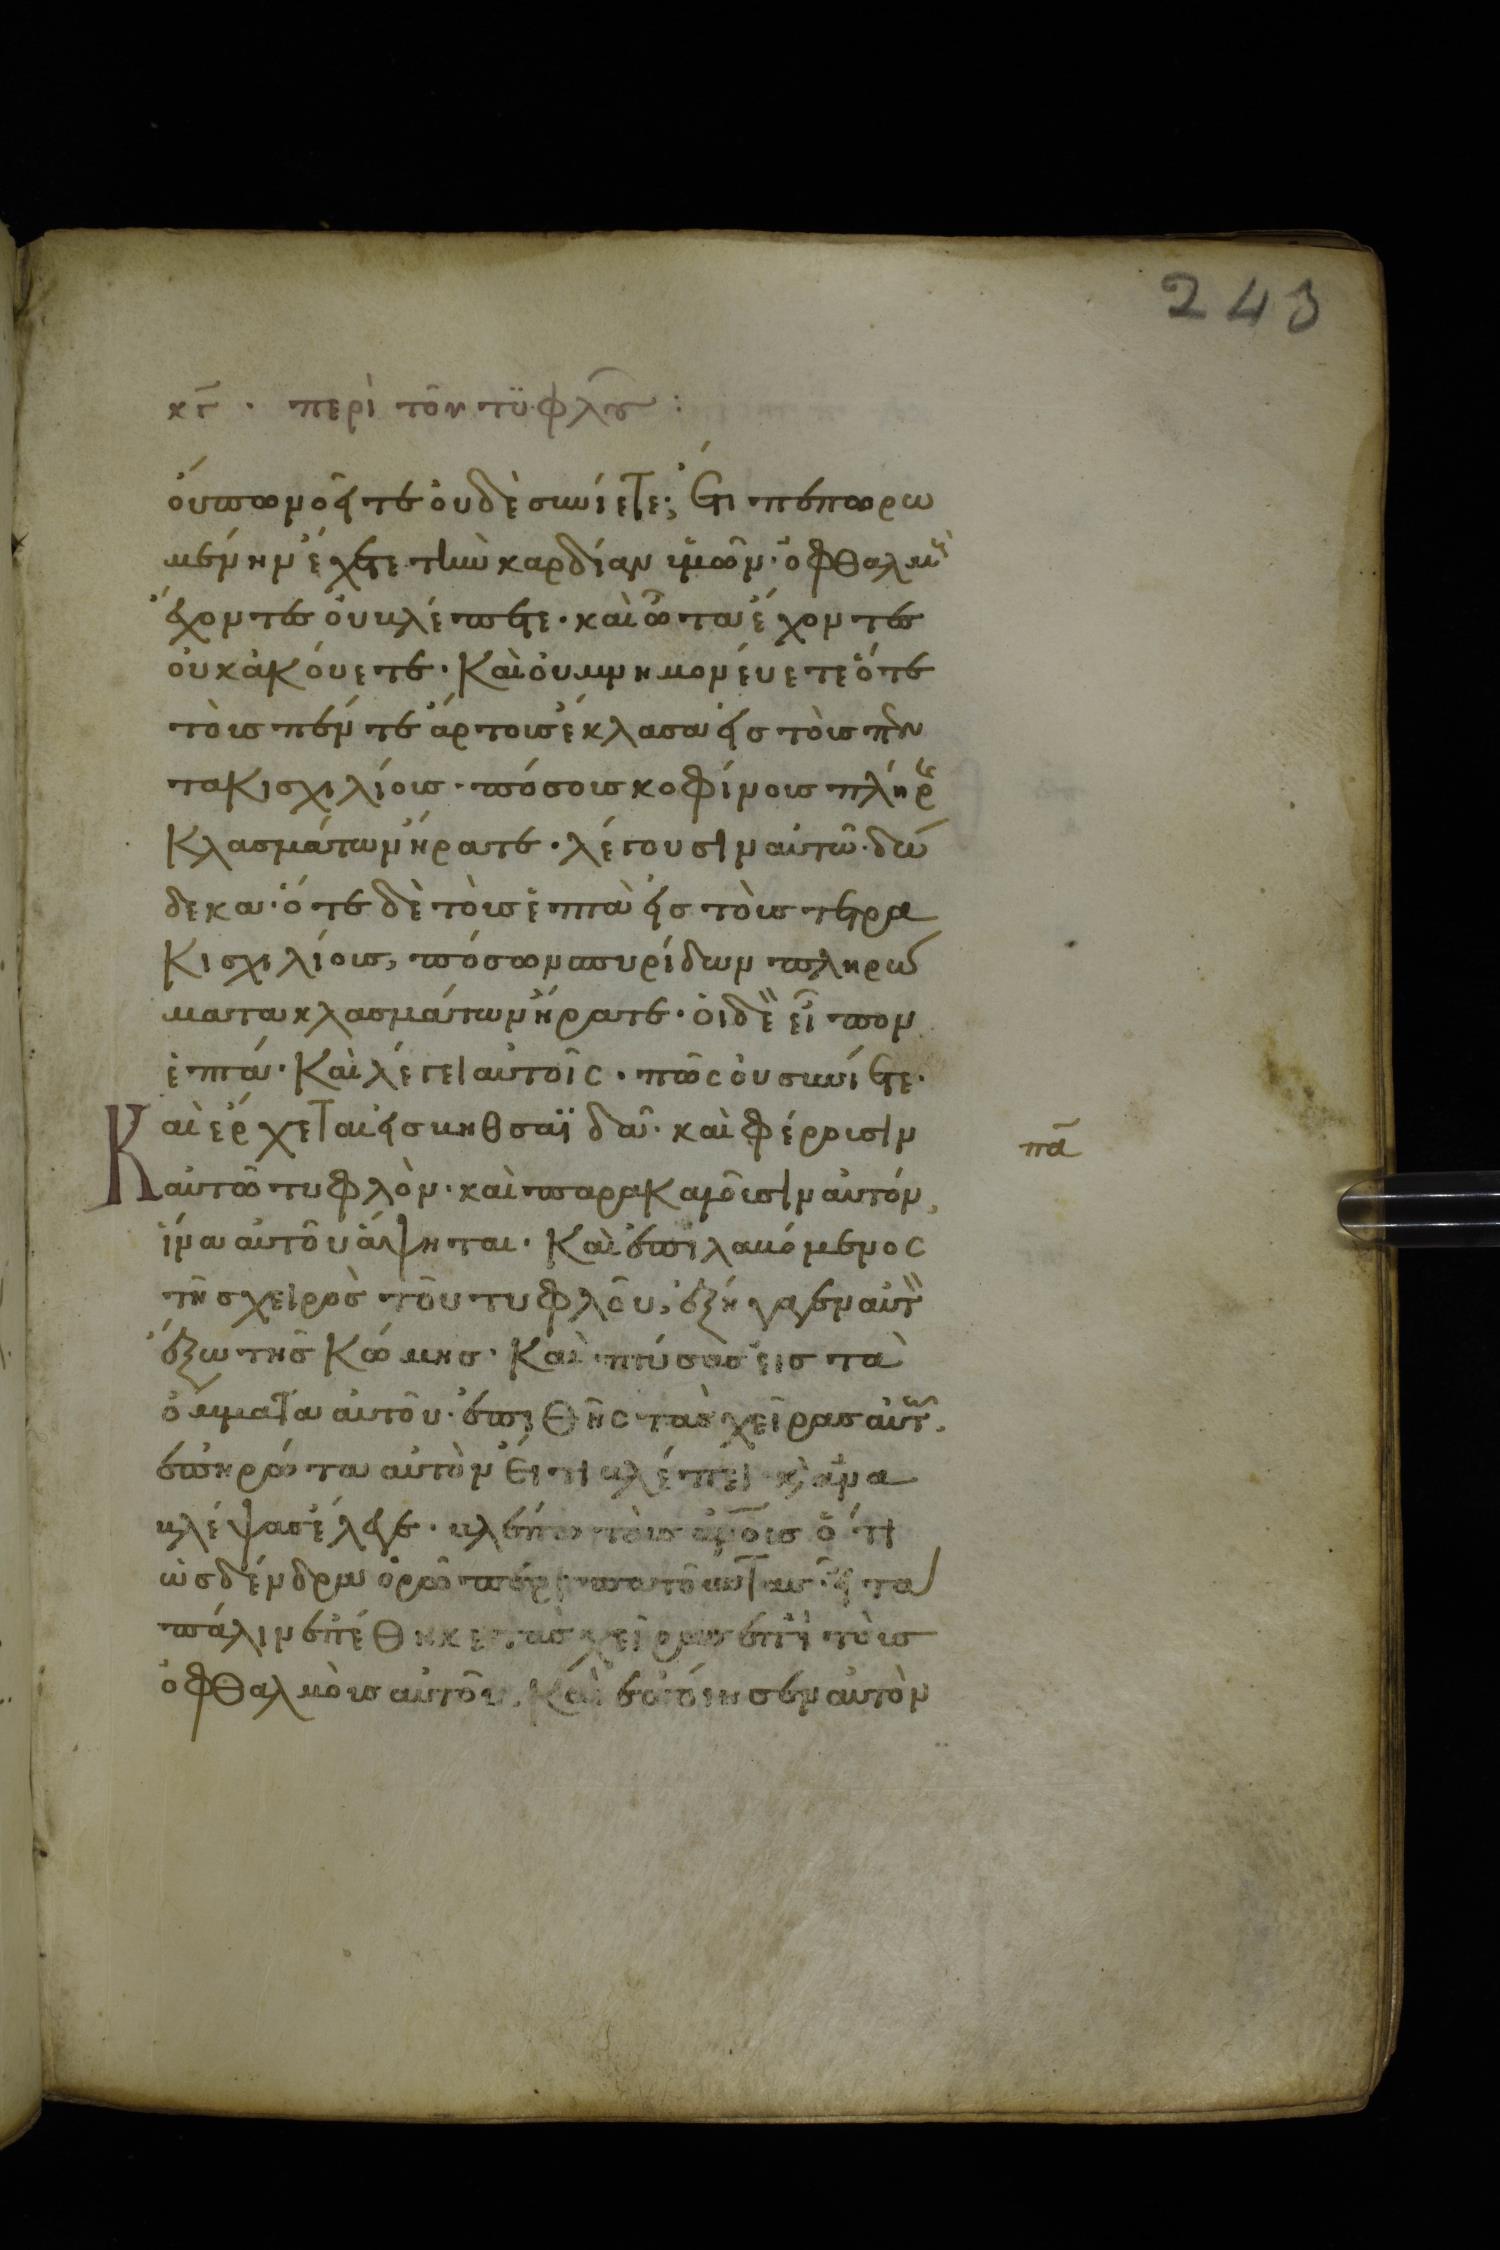 243
κγ̄ · περὶ τοῦ τυφλοῦ :
όυπω νοεῖτε ὀυδὲ συνίετε; ἔτι πεπωρω
μένην ἔχετε τὴν καρδίαν ὑμῶν· ὀφθαλμοὺς
ἔχοντες ὀυ βλέπετε· καὶ ὦτα ἔχοντες
ὀυκ ἀκόυετε· Καὶ ὀυ μνημονέυετε ὅτε
τοὺς πέντε ἄρτους ἔκλασα εἰς τοὺς πεν
τακισχιλίους· πόσους κοφίνους πλήρεις
κλασμάτων ἤρατε· λέγουσιν αὐτῶ· δώ
δεκα· ὅτε δὲ τοὺς ἑπτὰ εἰς τοὺς τετρα
κισχιλίους, πόσων σπυρίδων πληρώ
ματα κλασμάτων ἤρατε· ὁι δὲ εἶπον
ἑπτά· Καὶ λέγει αὐτοῖς· πῶς ὀυ συνίετε·
Καὶ ἔρχεται εἰς βηθσαϊδὰν· καὶ φέρουσιν
πα
αὐτῶ τυφλὸν· καὶ παρακαλοῦσιν αὐτόν,
ἵνα αὐτοῦ ἅψηται· Καὶ ἐπιλαβόμενος
τῆς χειρὸς τοῦ τυφλοῦ, ἐξήγαγεν αὐτὸν
ἔξω τῆς κώμης· Καὶ πτύσας εἰς τὰ
ὄμματα αὐτοῦ· ἐπιθεὶς τὰς χεῖρας αὐτῶ·
ἐπηρώτα αὐτὸν εἴ τι βλέπει· κ̀ ἀνα
βλέψας ἔλεγε· βλέπω τοὺς ἀνο̅υς ὅτι
ὡς δένδρα ὁρῶ περιπατοῦντας· εἶτα
πάλιν ἐπέθηκε τὰς χεῖρας ἐπὶ τοὺς
ὀφθαλμοὺς αὐτοῦ· Καὶ ἐποίησεν αὐτὸν